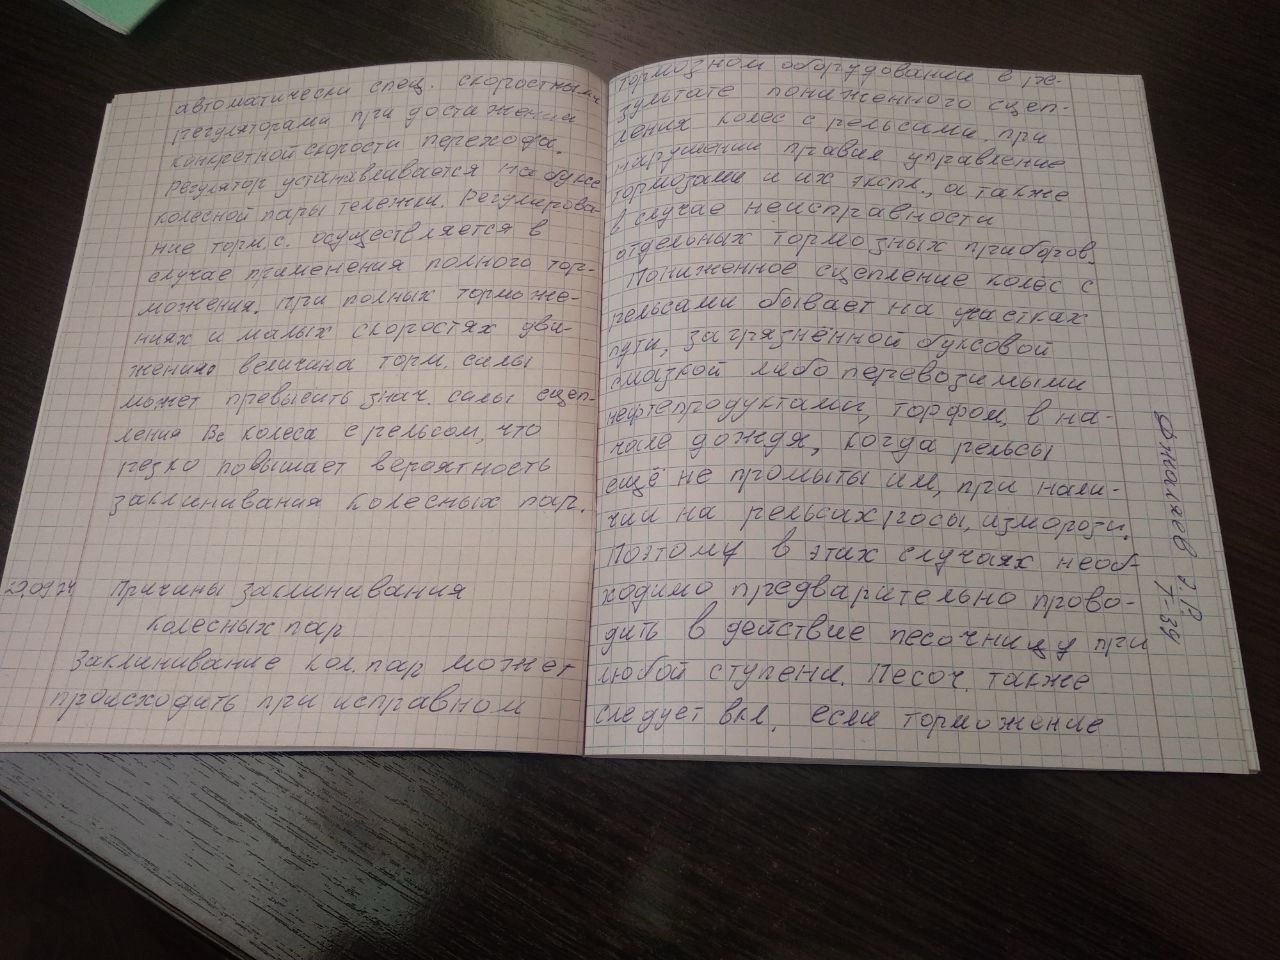 автоматически спец. скоростными
регуляторами при достижении
конкретной скорости перехода.
Регулятор устанавливается на буксе
колесной пары тележки. Регулирова-
ние торм с. осуществляется в
случае применения полного тор-
можения. При полных торможе-
ниях и малых скоростях дви-
жения величина торм. силы
может превысить знач. силы сцеп-
ления Вс колеса с рельсом, что
резко повышает вероятность
заклинивания колесных пар.
Причины заклинивания
колесных пар
Заклинивание кол. пар может
происходить при исправном
тормозном оборудовании в ре-
зультате пониженного сцеп-
ления колес с рельсима, при
нарушении правил управление
тормозами и их экспл., а также
в случае неисправности
отдельных тормозных приборов.
Пониженное сцепление колёс с
рельсами бывает на участках
пути, загрязнённой буксовой
смазкой либо перевозимыми
нефтепродуктами, торфом, в на-
чале дождя, когда рельсы
ещё не промыты им, при нали-
чии на рельсах росы, изморози.
Поэтому в этих случаях необ-
ходимо предварительно приво-
дить в действие песочницу при
любой ступени. Песоч. также
следует вкл. если торможение
Т-34